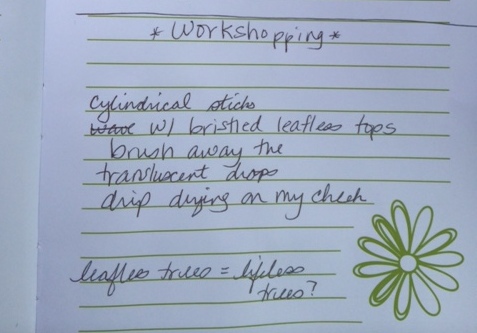 *Workshopping*
cylindrical sticks
w/ bristled leafless tops
brush away the
translucent drops
drip drying on my cheek
leafless trees = lifeless
trees?